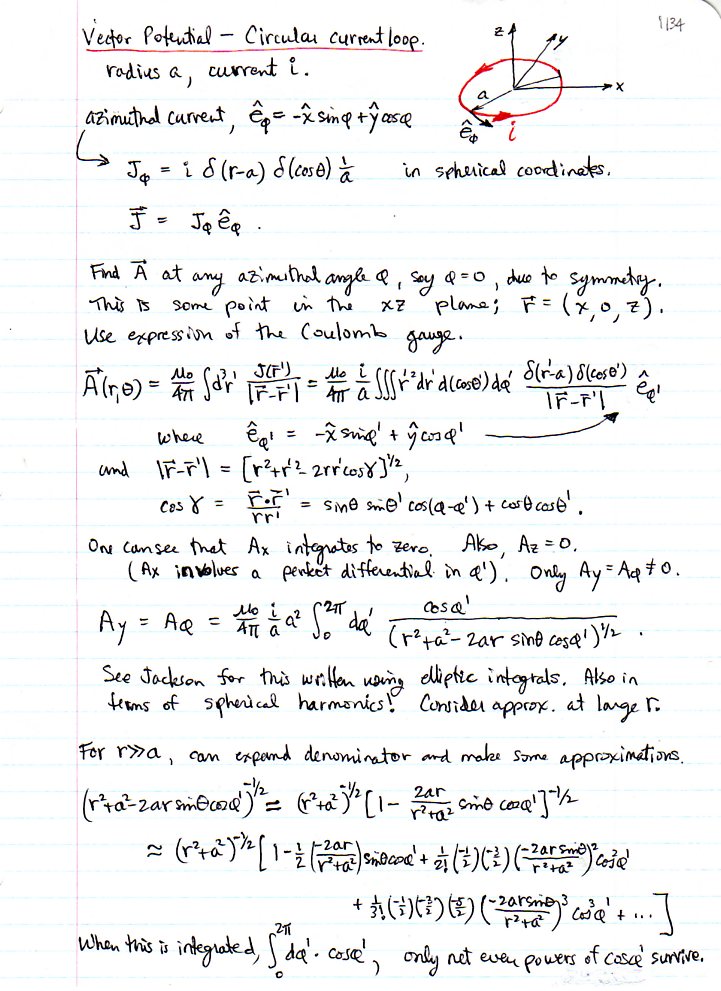 1/34
Vector Potential – Circular current loop.
radius a, current i.
z y x a ê_φ i
azimuthal current, ê_φ = -x̂ sinφ + ŷ cosφ
J_φ = i δ(r-a) δ(cosθ) 1/a in spherical coordinates.
J⃗ = J_φ ê_φ .
Find A⃗ at any azimuthal angle φ, say φ=0, due to symmetry.
This is some point in the xz plane; r⃗ = (x, 0, z).
Use expression of the Coulomb gauge.
A⃗(r,θ) = μ₀/4π ∫d³r' J(r⃗')/|r⃗-r⃗'| = μ₀/4π i/a ∫∫∫ r'² dr' d(cosθ') dφ' δ(r'-a) δ(cosθ')/|r⃗-r⃗'| ê_φ'
where ê_φ' = -x̂ sinφ' + ŷ cosφ'
and |r⃗-r⃗'| = [r²+r'²-2rr'cosγ]^1/2,
cosγ = r⃗·r⃗'/rr' = sinθ sinθ' cos(φ-φ') + cosθ cosθ'.
One can see that Ax integrates to zero. Also, Az = 0.
(Ax involves a perfect differential in φ'). Only Ay = Aφ ≠ 0.
Ay = Aφ = μ₀/4π i/a a² ∫₀^2π dφ' cosφ'/(r²+a²-2ar sinθ cosφ')^1/2 .
See Jackson for this written using elliptic integrals. Also in
terms of spherical harmonics! Consider approx. at large r.
For r≫a, can expand denominator and make some approximations.
(r²+a²-2ar sinθ cosφ')^-1/2 = (r²+a²)^-1/2 [1 - 2ar/r²+a² sinθ cosφ']^-1/2
≈ (r²+a²)^-1/2 [1 - 1/2 (-2ar/r²+a²) sinθ cosφ' + 1/2! (-1/2)(-3/2) (-2ar sinθ/r²+a²)² cos²φ'
+ 1/3! (-1/2)(-3/2)(-5/2) (-2ar sinθ/r²+a²)³ cos³φ' + ...]
When this is integrated, ∫₀^2π dφ' · cosφ', only net even powers of cosφ' survive.